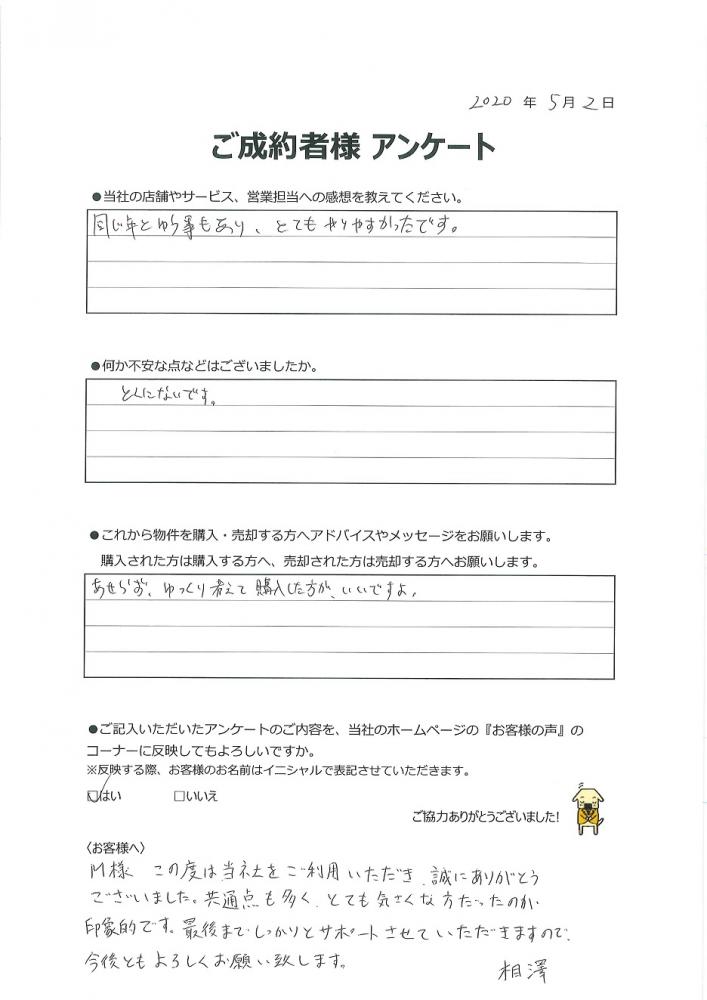 2020 年 5月 2日
ご成約者様 アンケート
●当社の店舗やサービス、営業担当への感想を教えてください。
同じ年とゆう事もあり、とても やりやすかったです。
●何か不安な点などはございましたか。
とくにないです。
●これから物件を購入・売却する方へアドバイスやメッセージをお願いします。
購入された方は購入する方へ、売却された方は売却する方へお願いします。
あせらず、ゆっくり考えて 購入した方が、いいですよ。
●ご記入いただいたアンケートのご内容を、当社のホームページの『お客様の声』の
コーナーに反映してもよろしいですか。
※反映する際、お客様のお名前はイニシャルで表記させていただきます。
☑はい □いいえ
ご協力ありがとうございました!
〈お客様へ〉
M様 この度は当社をご利用いただき、誠にありがとう
ございました。共通点も多く、とても気さくな方だったのが
印象的です。最後までしっかりとサポートさせていただきますので、
今後ともよろしくお願い致します。
相澤